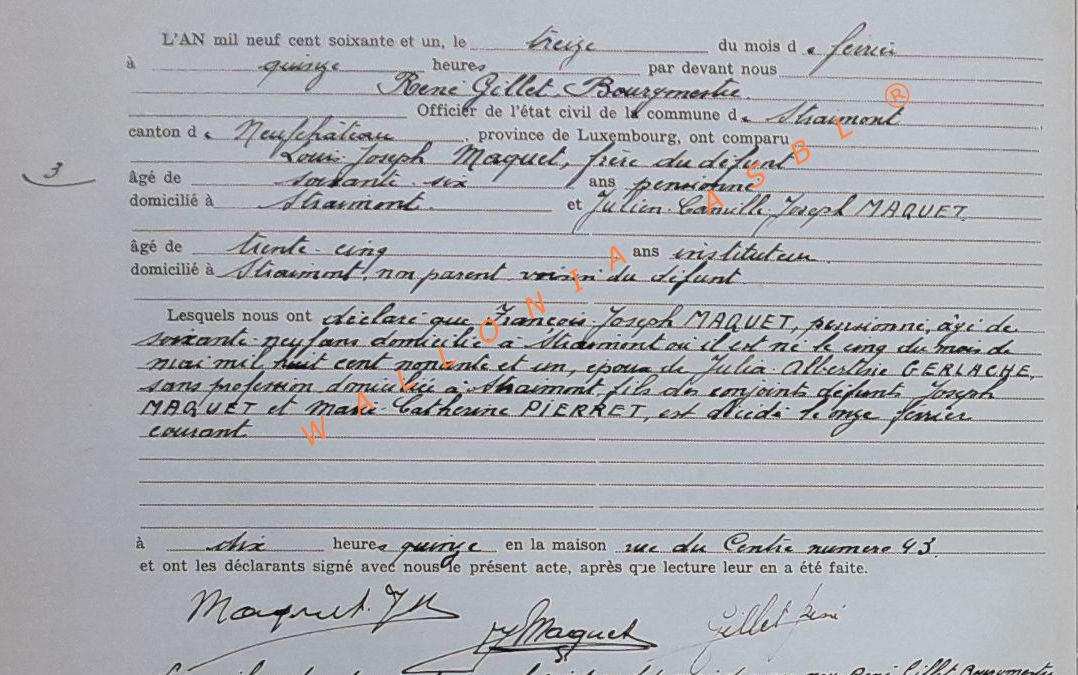 L'AN mil neuf cent soixante et un, le treize du mois de février
à quinze heures par devant nous
René Gillet Bourgmestre
Officier de l'état civil de la commune de Straimont
canton de Neufchâteau, province de Luxembourg, ont comparu
Louis Joseph Maquet, frère du défunt
3
âgé de soixante-six ans pensionné
domicilié à Straimont et Julien Camille Joseph MAQUET
âgé de trente-cinq ans instituteur
domicilié à Straimont, non parent voisin du défunt
Lesquels nous ont déclaré que François Joseph MAQUET, pensionné, âgé de
soixante-neuf ans domicilié à Straimont où il est né le cinq du mois de
mai mil huit cent nonante et un, époux de Julia Albertine GERLACHE,
sans profession domiciliée à Straimont, fils de conjoints défunts Joseph
MAQUET et Marie Catherine PIERRET, est décédé le onze février
courant
à heures quinze en la maison rue du Centre numero 43.
et ont les déclarants signé avec nous le présent acte, après que lecture leur en a été faite.
Maquet JM Maquet Gillet René
René Gillet Bourgmestre
WALLONIA ASBL ®